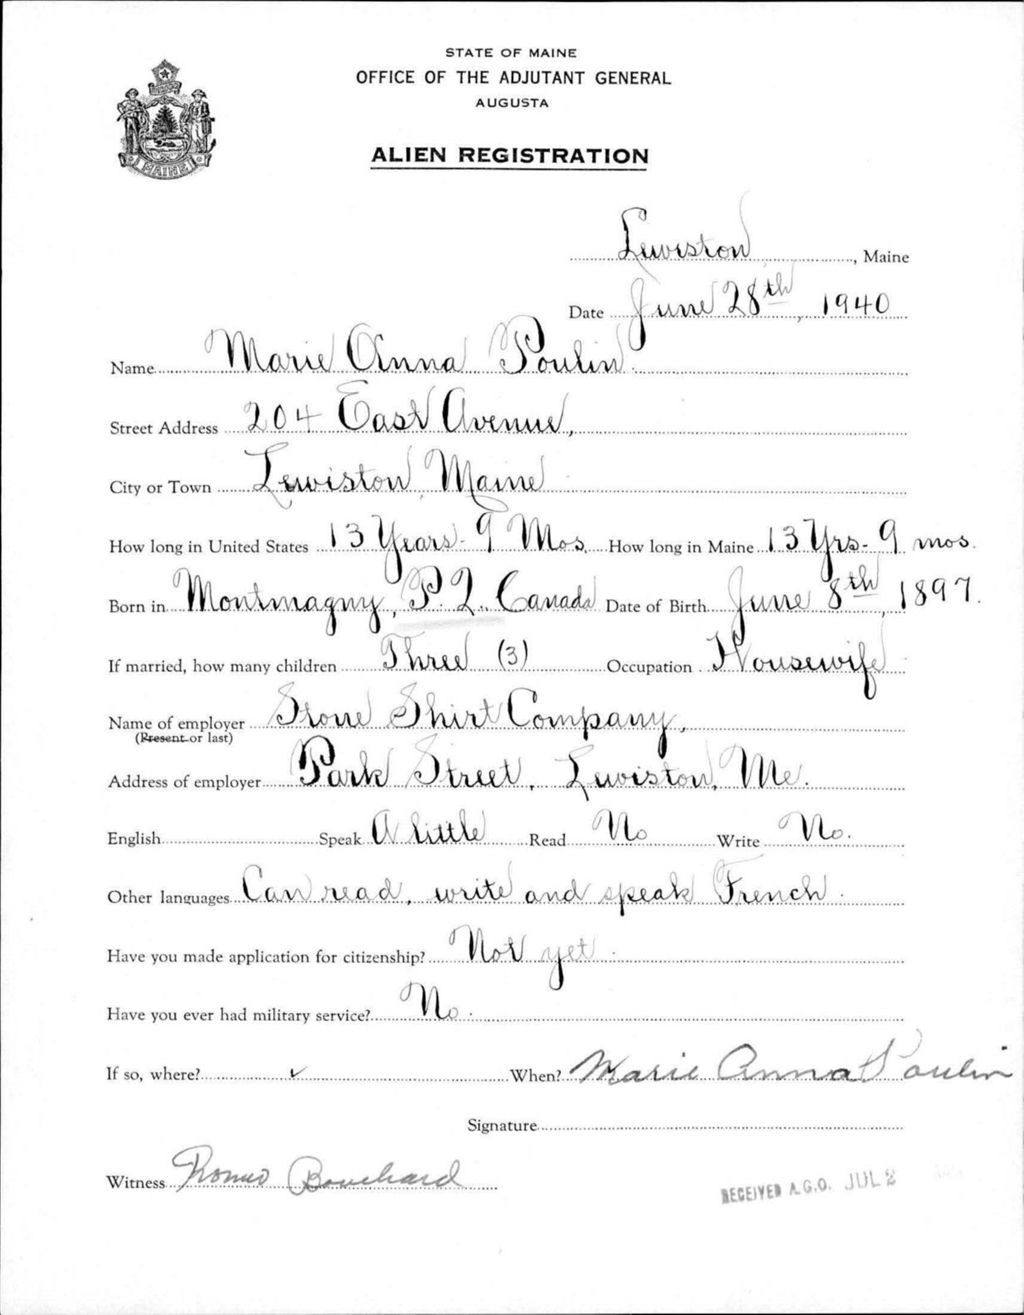 STATE OF MAINE
OFFICE OF THE ADJUTANT GENERAL
AUGUSTA
ALIEN REGISTRATION
MAINE
Lewiston, Maine
Date June 28th, 1940
Name Marie Anna Poulin
Street Address 204 East Avenue,
City or Town Lewiston, Maine
How long in United States 13 Years - 9 Mos. How long in Maine 13 Yrs - 9 mos.
Born in Montmagny, P.Q., Canada Date of Birth June 8th, 1897.
If married, how many children Three (3) Occupation Housewife
Name of employer Stone Shirt Company,
(Present or last)
Address of employer Park Street, Lewiston, Me.
English Speak A little Read No Write No.
Other languages Can read, write and speak French.
Have you made application for citizenship? Not yet.
Have you ever had military service? No.
If so, where? ✓ When? Marie Anna Poulin
Signature
Witness Romeo Bouchard
RECEIVED A.G.O. JUL 2